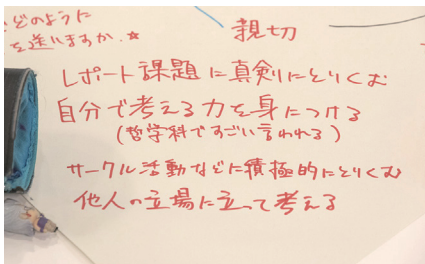 どのように
を送りますか。☆
親切
レポート課題に真剣にとりくむ
自分で考える力を身につける
(哲学科ですごい言われる)
サークル活動などに積極的にとりくむ
他人の立場に立って考える